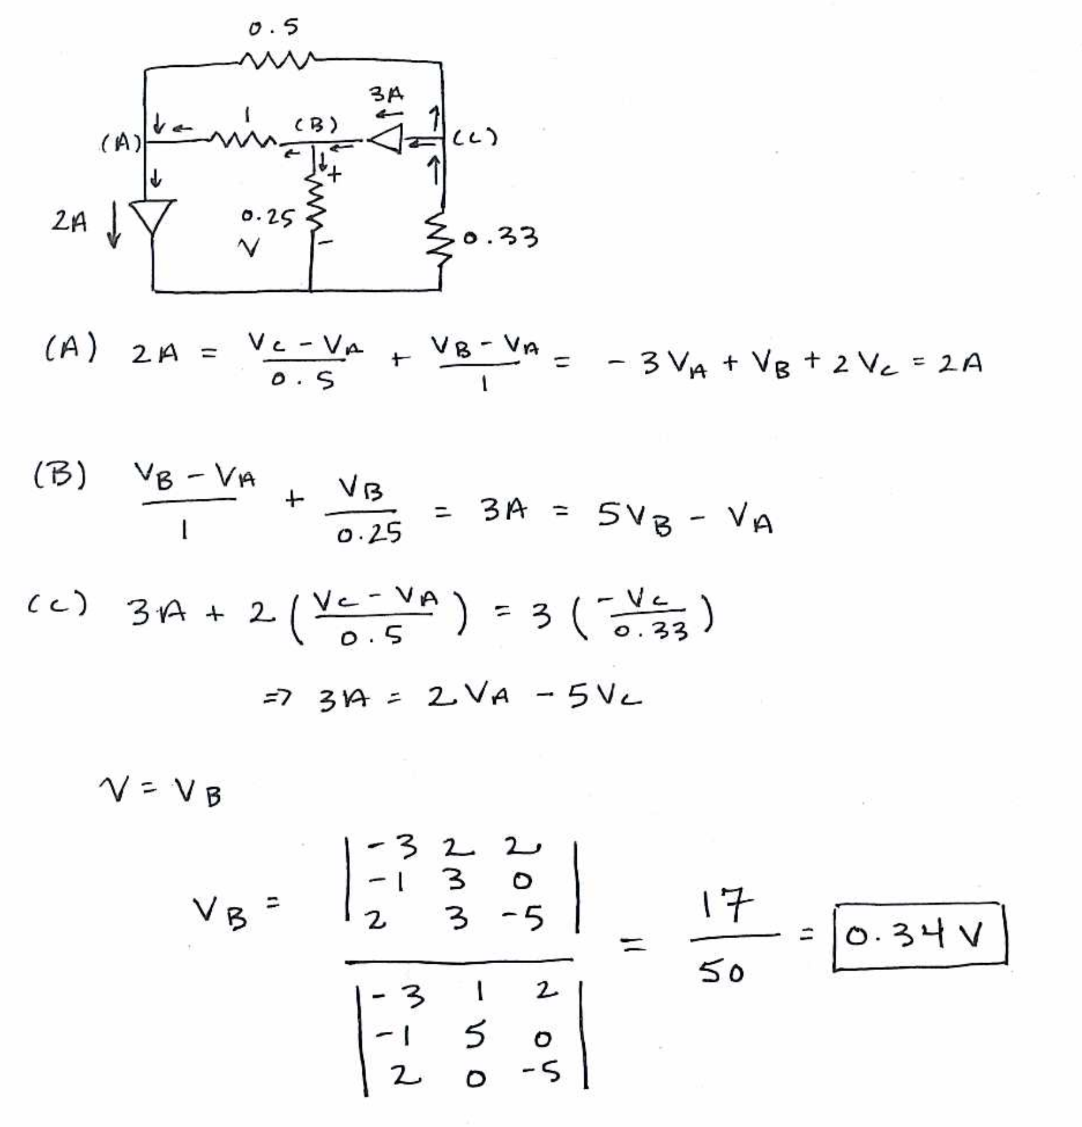 0.5
3A
1 (B)
(A) (C)
+
2A 0.25 0.33
V -
(A) 2A = (Vc - VA)/0.5 + (VB - VA)/1 = - 3VA + VB + 2Vc = 2A
(B) (VB - VA)/1 + VB/0.25 = 3A = 5VB - VA
(C) 3A + 2((Vc - VA)/0.5) = 3(-Vc/0.33)
=> 3A = 2VA - 5Vc
V = VB
|-3 2 2|
|-1 3 0|
VB = |2 3 -5| = 17/50 = 0.34 V
|-3 1 2|
|-1 5 0|
|2 0 -5|